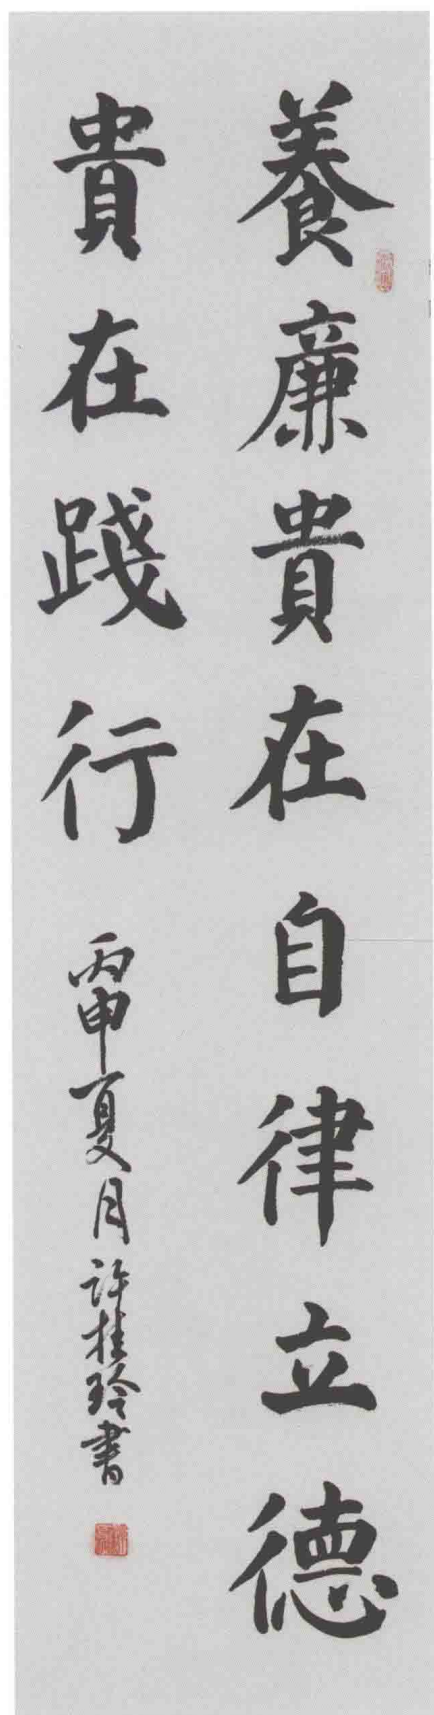 養廉貴在自律立德
貴在踐行
丙申夏月许桂玲書